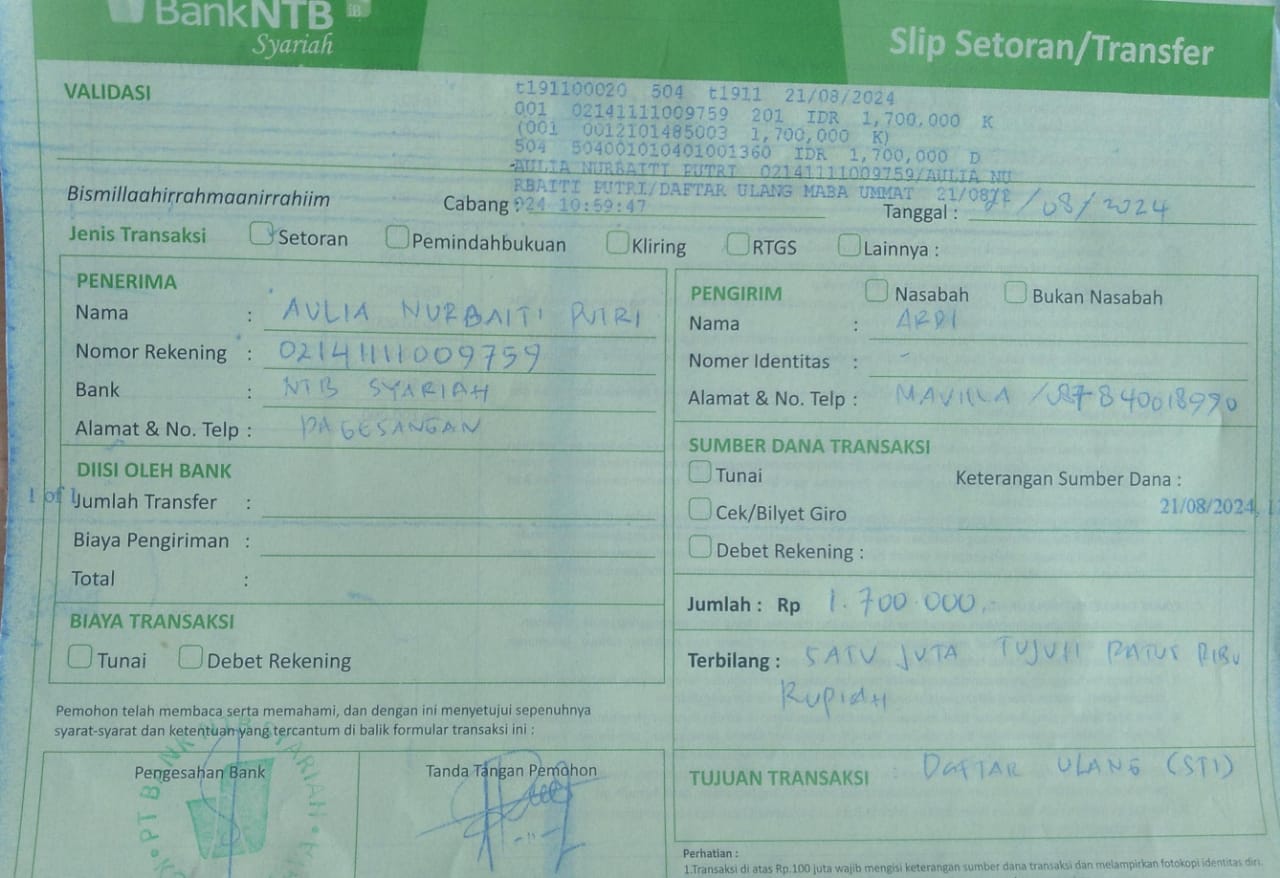 BankNTB iB
Syariah
Slip Setoran/Transfer
VALIDASI
t191100020 504 t1911 21/08/2024
001 02141111009759 201 IDR 1,700,000 K
(001 0012101485003 1,700,000 K)
504 504001010401001360 IDR 1,700,000 D
-AULIA NURBAITI PUTRI 02141111009759/AULIA NU
RBAITI PUTRI/DAFTAR ULANG MABA UMMAT 21/08/2
024 10:59:47
Bismillaahirrahmaanirrahiim
Cabang :
Tanggal : 21/08/2024
Jenis Transaksi Setoran Pemindahbukuan Kliring RTGS Lainnya :
PENERIMA
Nama : AULIA NURBAITI PUTRI
Nomor Rekening : 02141111009759
Bank : NTB SYARIAH
Alamat & No. Telp : PAGESANGAN
DIISI OLEH BANK
1 of 1
Jumlah Transfer :
Biaya Pengiriman :
Total :
BIAYA TRANSAKSI
Tunai Debet Rekening
PENGIRIM Nasabah Bukan Nasabah
Nama : ARDI
Nomer Identitas : -
Alamat & No. Telp : MAVILLA /087840018990
SUMBER DANA TRANSAKSI
Tunai Keterangan Sumber Dana :
21/08/2024, 1
Cek/Bilyet Giro
Debet Rekening :
Jumlah : Rp 1.700.000,-
Terbilang : SATU JUTA TUJUH RATUS RIBU
RUPIAH
Pemohon telah membaca serta memahami, dan dengan ini menyetujui sepenuhnya
syarat-syarat dan ketentuan yang tercantum di balik formular transaksi ini :
Pengesahan Bank
PT BANK NTB SYARIAH
Tanda Tangan Pemohon
TUJUAN TRANSAKSI DAFTAR ULANG (STI)
Perhatian :
1.Transaksi di atas Rp.100 juta wajib mengisi keterangan sumber dana transaksi dan melampirkan fotokopi identitas diri.